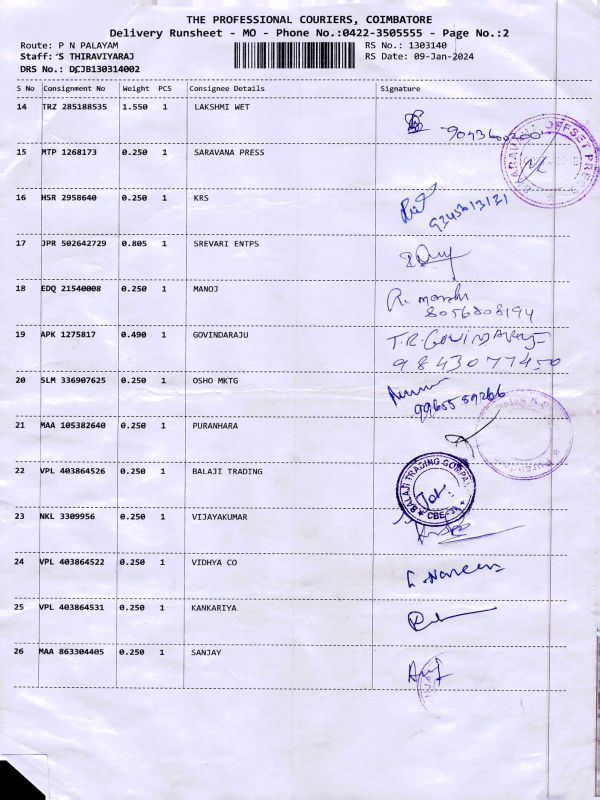 THE PROFESSIONAL COURIERS, COIMBATORE
Delivery Runsheet - MO - Phone No.:0422-3505555 - Page No.:2
Route: P N PALAYAM RS No.: 1303140
Staff: S THIRAVIYARAJ RS Date: 09-Jan-2024
DRS No.: DCJB130314002
S No Consignment No Weight PCS Consignee Details Signature
14 TRZ 285188535 1.550 1 LAKSHMI WET
9043600200
15 MTP 1268173 0.250 1 SARAVANA PRESS
OFFSET PRESS
16 HSR 2958640 0.250 1 KRS
9345613131
17 JPR 502642729 0.805 1 SREVARI ENTPS
18 EDQ 21540008 0.250 1 MANOJ
8056808194
19 APK 1275817 0.490 1 GOVINDARAJU
T.R. GOVINDARAJ
9843077450
20 SLM 336907625 0.250 1 OSHO MKTG
9965559266
21 MAA 105382640 0.250 1 PURANHARA
22 VPL 403864526 0.250 1 BALAJI TRADING
BALAJI TRADING COMPANY
CBE
23 NKL 3309956 0.250 1 VIJAYAKUMAR
24 VPL 403864522 0.250 1 VIDHYA CO
25 VPL 403864531 0.250 1 KANKARIYA
26 MAA 863304405 0.250 1 SANJAY